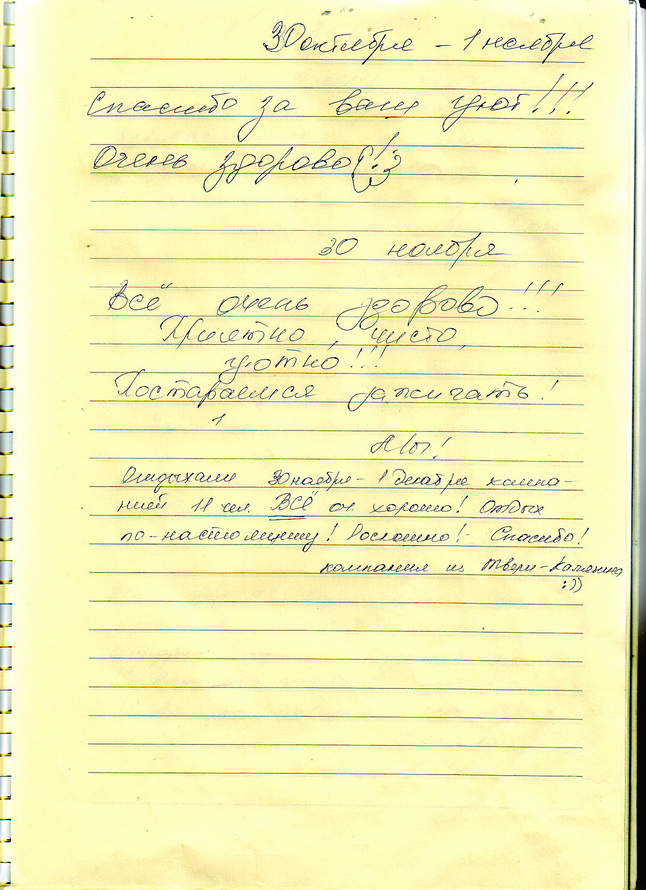 30 октября - 1 ноября
Спасибо за ваш уют!!!
Очень здорово!:)
30 ноября
Всё очень здорово!!!
Приятно, чисто,
уютно!!!
Постараемся зажигать!
Мы!
Отдыхали 30 ноября - 1 декабря компа-
нией 11 чел. ВСЁ оч. хорошо! Отдых
по-настоящему! Роскошно! Спасибо!
компания из Твери-Калинина
:))